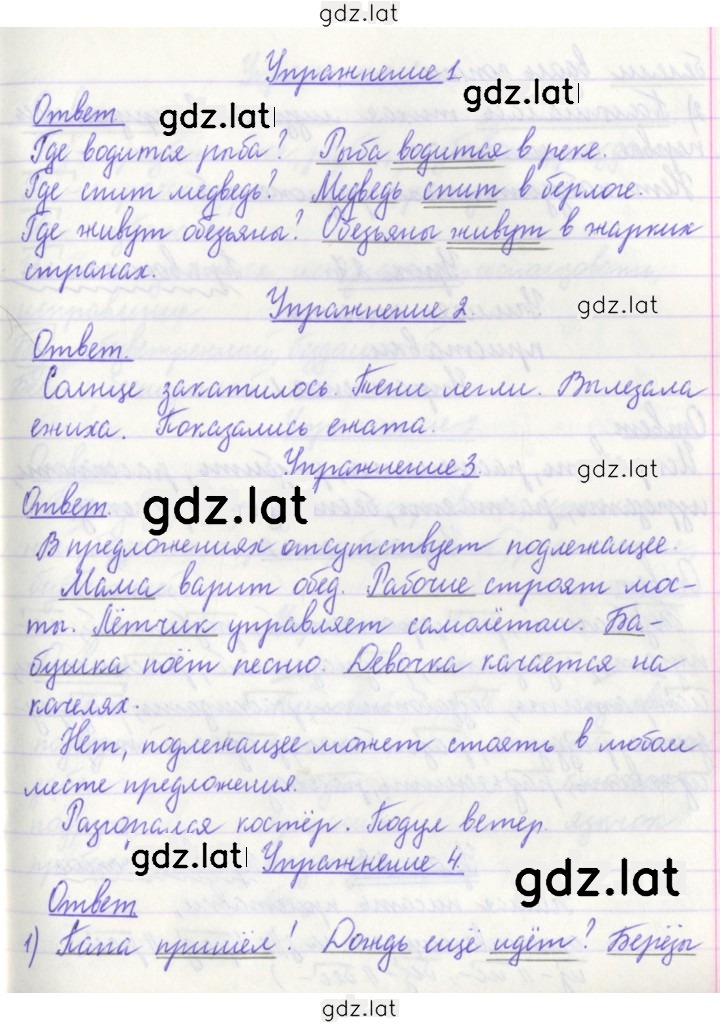 gdz.lat
Упражнение 1.
gdz.lat
Ответ.
Где водится рыба? Рыба водится в реке.
Где спит медведь? Медведь спит в берлоге.
Где живут обезьяны? Обезьяны живут в жарких
странах.
Упражнение 2
gdz.lat
gdz.lat
Ответ.
Солнце закатилось. Тени легли. Вылезала
ежиха. Показались ежата.
Упражнение 3.
gdz.lat
Ответ.
gdz.lat
В предложениях отсутствует подлежащее.
Мама варит обед. Рабочие строят мос-
ты. Лётчик управляет самолётом. Ба-
бушка поёт песню. Девочка качается на
качелях.
Нет, подлежащее может стоять в любом
месте предложения.
Разгорался костёр. Подул ветер.
gdz.lat
Упражнение 4.
gdz.lat
Ответ
1) Папа пришёл! Дождь ещё идёт? Берёзы
gdz.lat